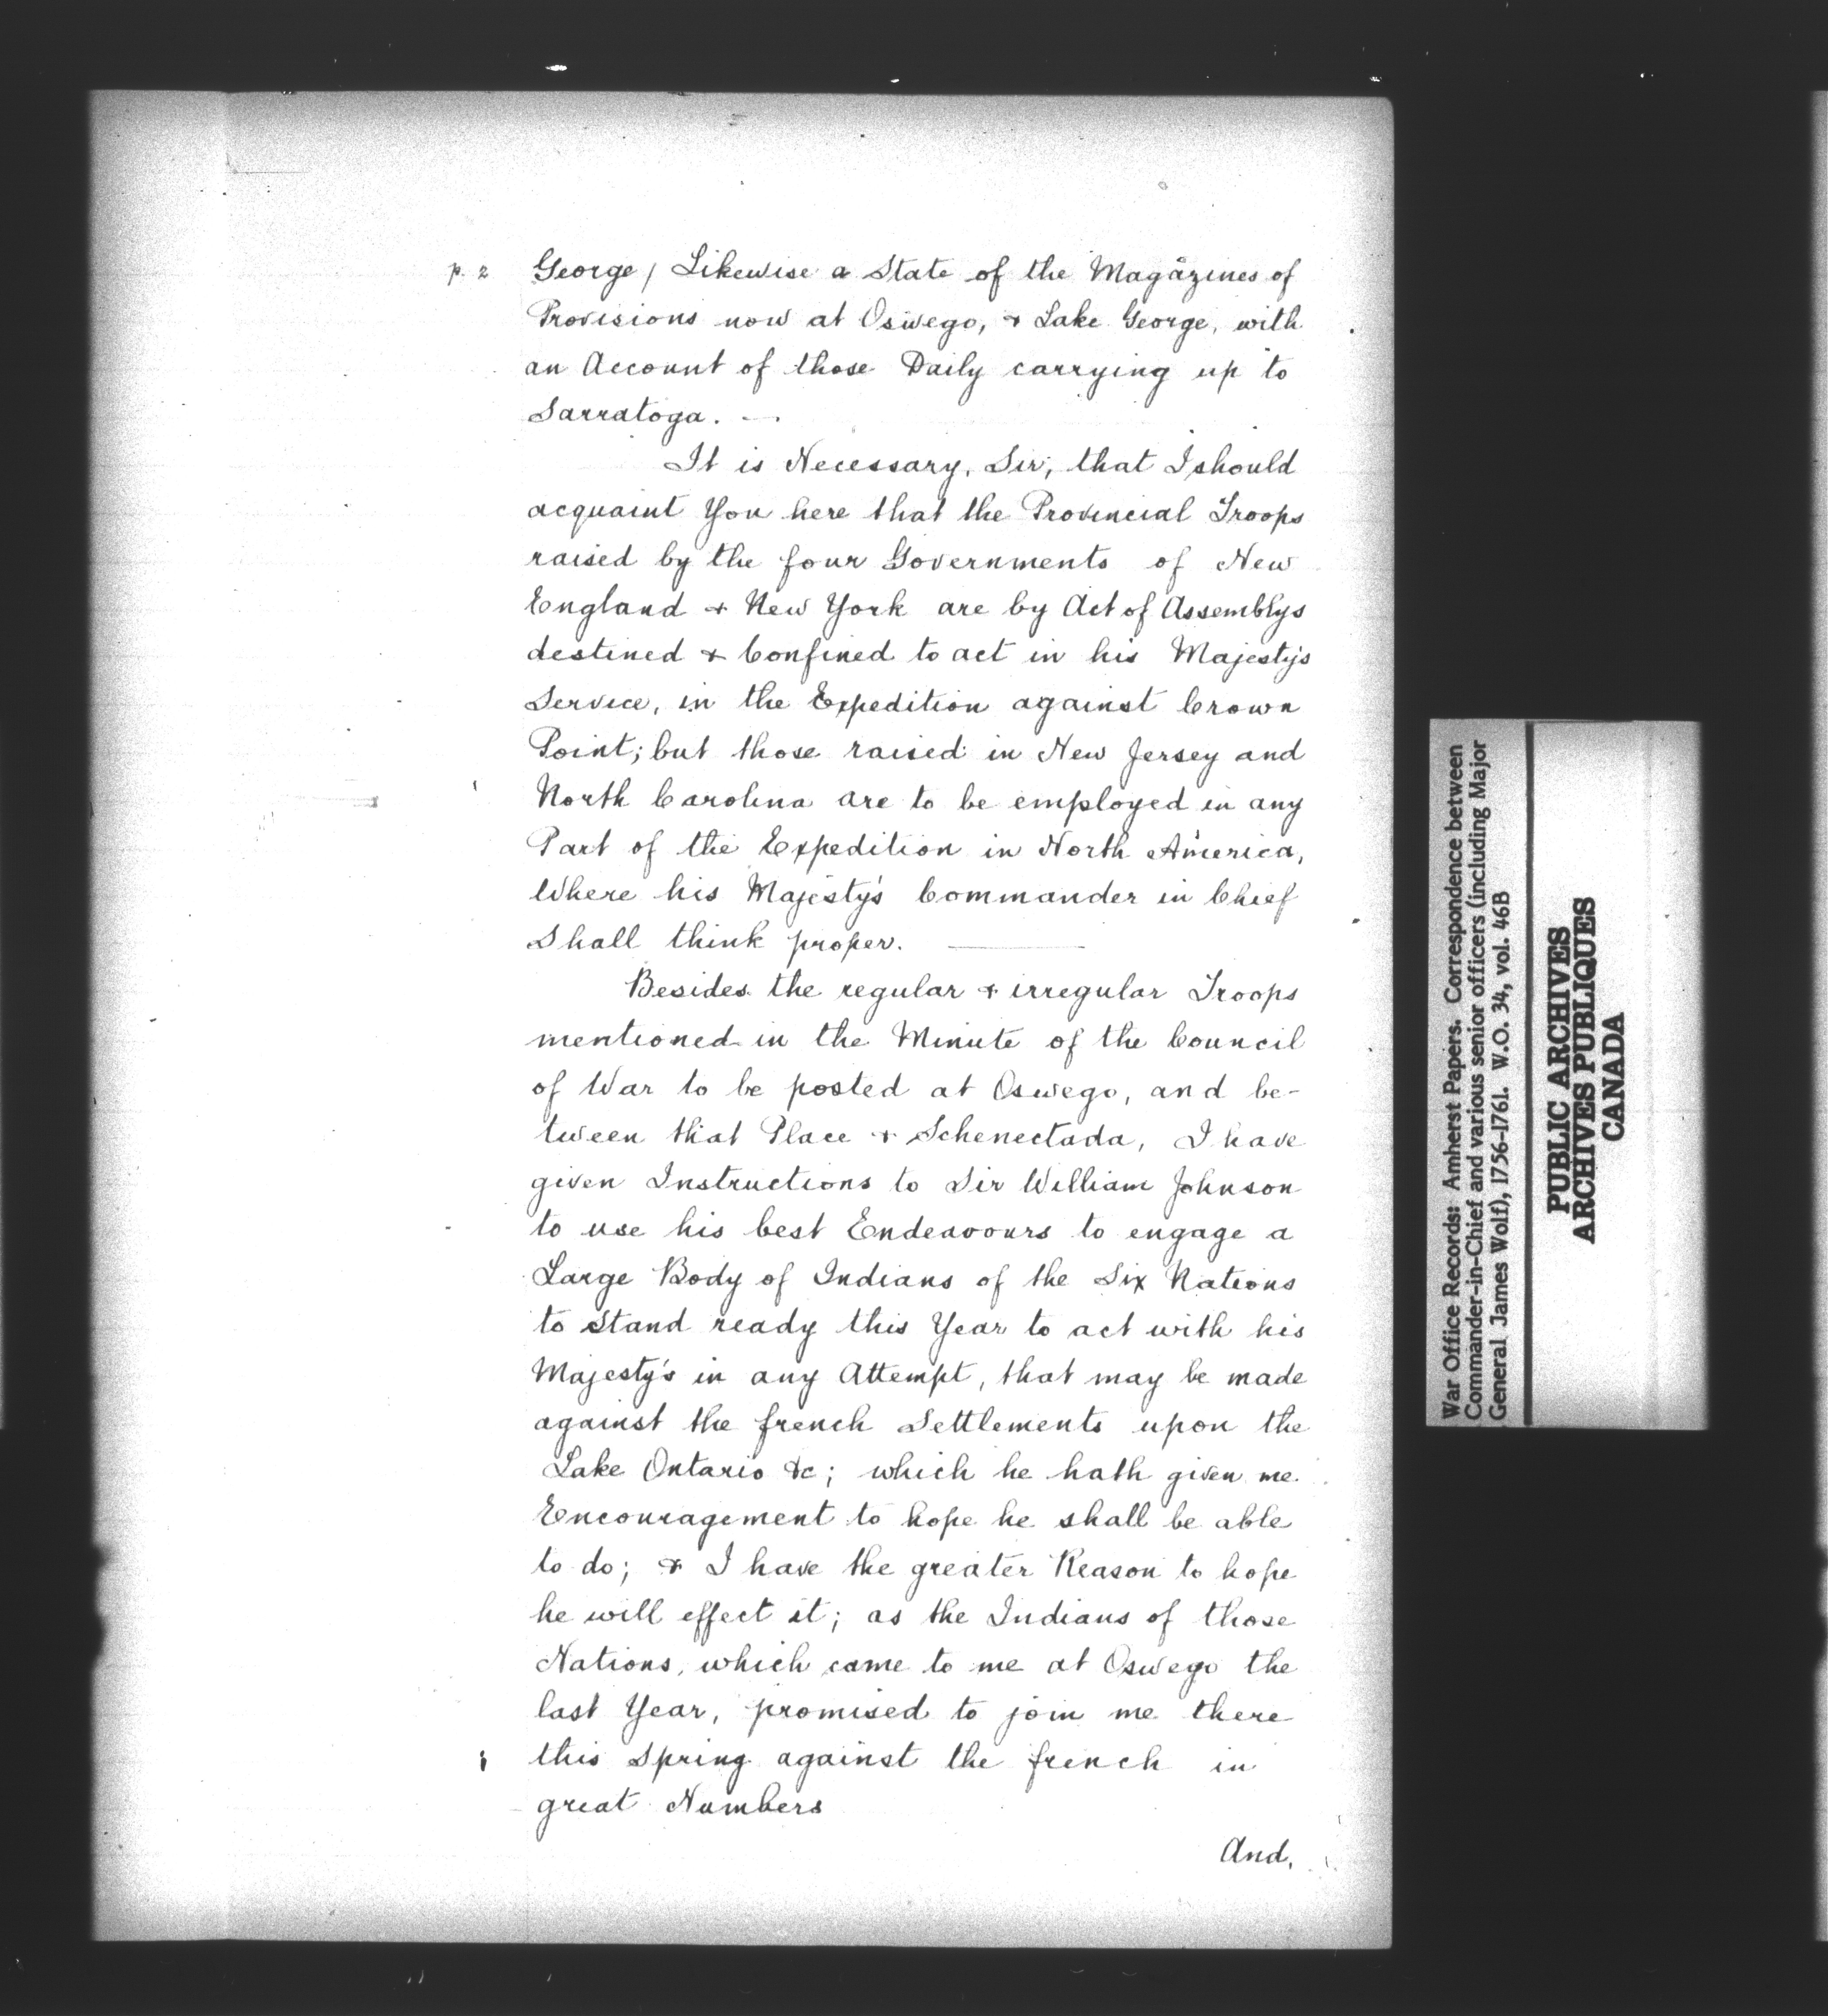 p. 2 George / Likewise a State of the Magazines of
Provisions now at Oswego, & Lake George, with
an Account of those Daily carrying up to
Sarratoga. —
It is Necessary, Sir, that I should
acquaint You here that the Provincial Troops
raised by the four Governments of New
England & New York are by Act of Assemblys
destined & Confined to act in his Majesty's
Service, in the Expedition against Crown
Point; but those raised in New Jersey and
North Carolina are to be employed in any
Part of the Expedition in North America,
Where his Majesty's Commander in Chief
Shall think proper. —
Besides the regular & irregular Troops
mentioned in the Minute of the Council
of War to be posted at Oswego, and be-
tween that Place & Schenectada, I have
given Instructions to Sir William Johnson
to use his best Endeavours to engage a
Large Body of Indians of the Six Nations
to Stand ready this Year to act with his
Majesty's in any Attempt, that may be made
against the french Settlements upon the
Lake Ontario &c; which he hath given me
Encouragement to hope he shall be able
to do; & I have the greater Reason to hope
he will effect it; as the Indians of those
Nations, which came to me at Oswego the
last Year, promised to join me there
this Spring against the french in
great Numbers
And,
War Office Records: Amherst Papers. Correspondence between
Commander-in-Chief and various senior officers (including Major
General James Wolf), 1756-1761. W.O. 34, vol. 46B
PUBLIC ARCHIVES
ARCHIVES PUBLIQUES
CANADA